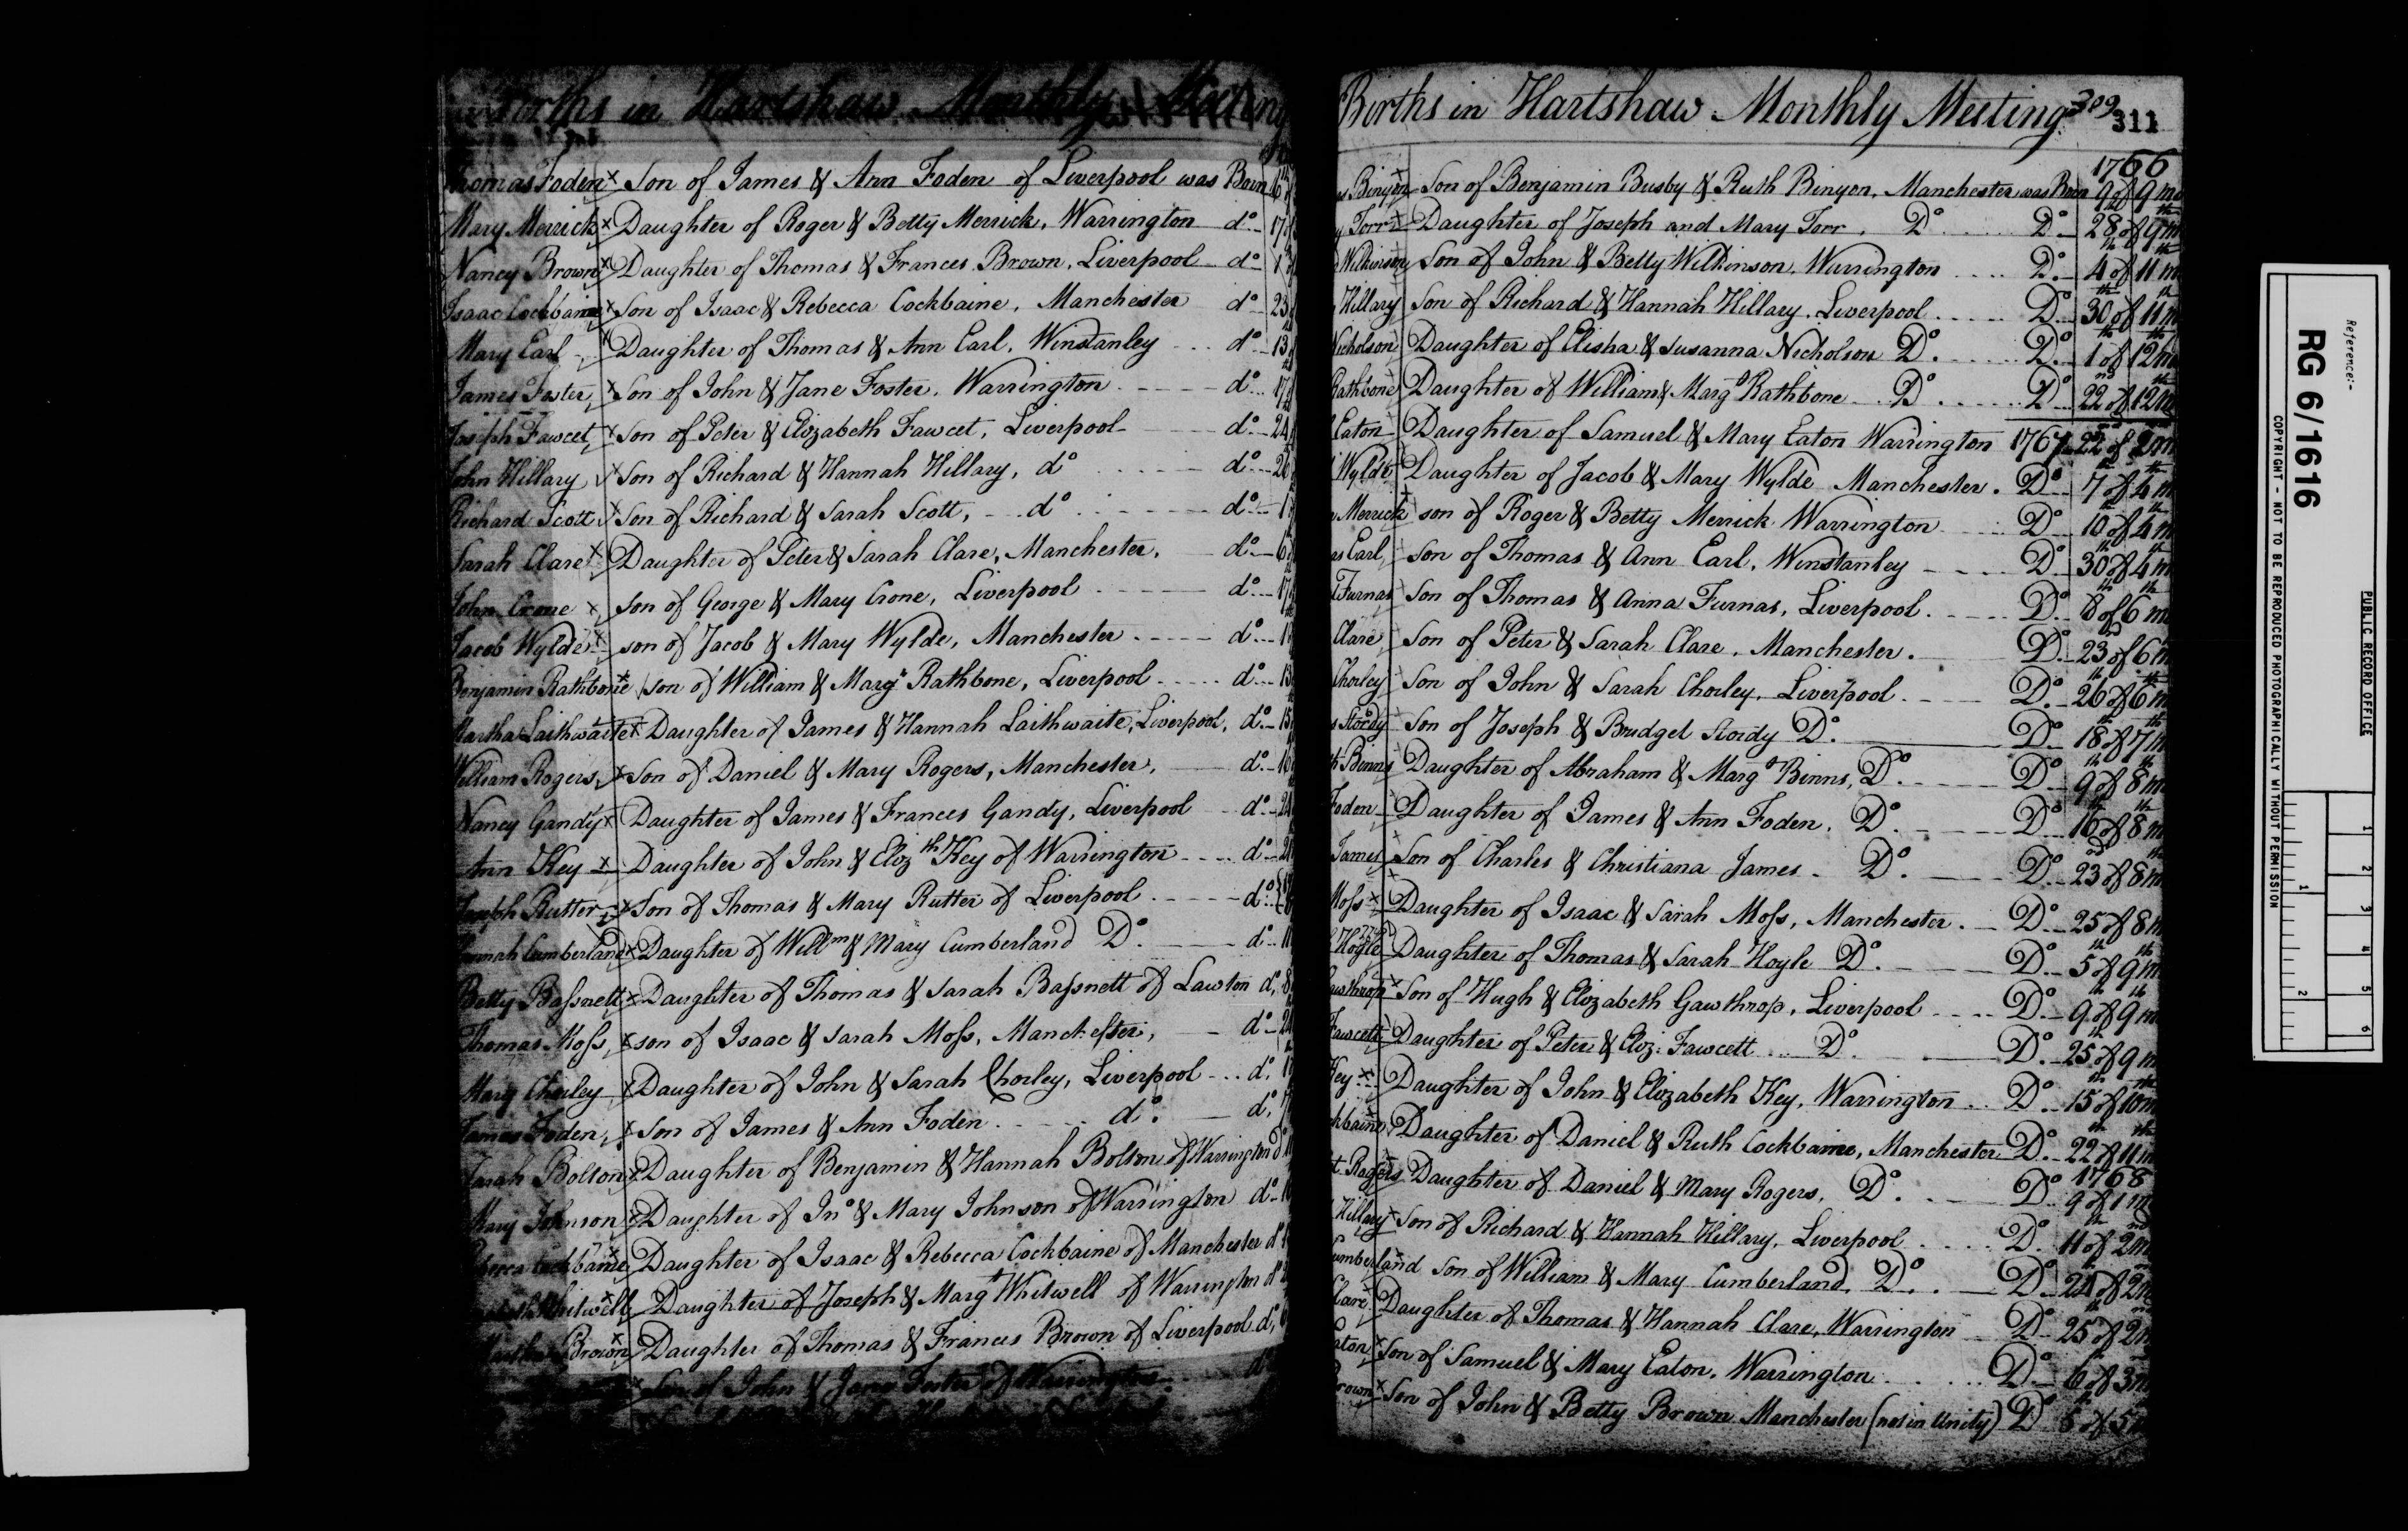 Births in Hartshaw Monthly Meeting
Thomas Foden x Son of James & Ann Foden of Liverpool was Born 6
Mary Merrick x Daughter of Roger & Betty Merrick, Warrington do 17
Nancy Brown x Daughter of Thomas & Frances Brown, Liverpool do
Isaac Cockbaine x Son of Isaac & Rebecca Cockbaine, Manchester do 23
Mary Earl x Daughter of Thomas & Ann Earl, Winstanley do 13
James Foster x Son of John & Jane Foster, Warrington do 17
Joseph Fawcet x Son of Peter & Elizabeth Fawcet, Liverpool do 24
John Hillary x Son of Richard & Hannah Hillary, do do 26
Richard Scott x Son of Richard & Sarah Scott, do do 1
Sarah Clare x Daughter of Peter & Sarah Clare, Manchester, do 6
John Crone x Son of George & Mary Crone, Liverpool do 17
Jacob Wylde x son of Jacob & Mary Wylde, Manchester do 1
Benjamin Rathbone x son of William & Margt Rathbone, Liverpool do 13
Martha Laithwaite x Daughter of James & Hannah Laithwaite, Liverpool, do 15
William Rogers x Son of Daniel & Mary Rogers, Manchester, do 16
Nancy Gandy x Daughter of James & Frances Gandy, Liverpool do 24
Ann Key x Daughter of John & Elizth Key of Warrington do 21
Joseph Rutter x Son of Thomas & Mary Rutter of Liverpool do
Hannah Cumberland x Daughter of Willm & Mary Cumberland Do do 11
Betty Bassnett x Daughter of Thomas & Sarah Bassnett of Lawton do, 8
Thomas Moss, x son of Isaac & Sarah Moss, Manchester, do 21
Mary Chorley x Daughter of John & Sarah Chorley, Liverpool do, 1
James Foden, x Son of James & Ann Foden do do, 7
Sarah Bolton x Daughter of Benjamin & Hannah Bolton of Warrington do
Mary Johnson x Daughter of Jno & Mary Johnson of Warrington do 1
Rebecca Cockbaine x Daughter of Isaac & Rebecca Cockbaine of Manchester do
Whitwell x Daughter of Joseph & Margt Whitwell of Warrington do
Martha Brown x Daughter of Thomas & Frances Brown of Liverpool do,
x Son of John & Jane Foster of Warrington do
Births in Hartshaw Monthly Meeting 309
311
1766
Binyon Son of Benjamin Busby & Ruth Binyon, Manchester was Born 9th of 9 mo
Torr x Daughter of Joseph and Mary Torr. Do Do 28 of 9th m
Wilkinson Son of John & Betty Wilkinson, Warrington Do 4th of 11th m
Hillary Son of Richard & Hannah Hillary, Liverpool Do 30th of 11th m
Nicholson Daughter of Elisha & Susanna Nicholson Do Do 1 of 12th m
Rathbone Daughter of William & Margt Rathbone Do Do 22nd of 12th m
Eaton Daughter of Samuel & Mary Eaton Warrington 1767 22 of 2m
Wylde Daughter of Jacob & Mary Wylde Manchester. Do 7th of 4th m
Merrick son of Roger & Betty Merrick Warrington Do 10th of 4th m
Earl, Son of Thomas & Ann Earl, Winstanley Do 30th of 4th m
Furnas Son of Thomas & Anna Furnas, Liverpool. Do 8th of 6th m
Clare Son of Peter & Sarah Clare, Manchester. Do 23rd of 6th m
Chorley Son of John & Sarah Chorley, Liverpool Do 26th of 6th m
Stordy Son of Joseph & Bridget Stordy Do. Do 18th of 7th m
Binns Daughter of Abraham & Margt Binns, Do. Do 9th of 8th m
Foden Daughter of James & Ann Foden. Do. Do 16th of 8th m
James Son of Charles & Christiana James Do. Do 23rd of 8th m
Moss x Daughter of Isaac & Sarah Moss, Manchester. Do 25 of 8m
Hoyle Daughter of Thomas & Sarah Hoyle Do. Do 5th of 9th m
Gawthrop x Son of Hugh & Elizabeth Gawthrop, Liverpool Do 9th of 9th m
Fawcett Daughter of Peter & Eliz: Fawcett Do. Do 25th of 9 m
Key x Daughter of John & Elizabeth Key, Warrington Do 15th of 10th m
Cockbaine Daughter of Daniel & Ruth Cockbaine, Manchester Do 22 of 11 m
1768
Rogers Daughter of Daniel & Mary Rogers. Do. Do 9 of 1 m
Hillary x Son of Richard & Hannah Hillary, Liverpool Do 11th of 2nd m
Cumberland Son of William & Mary Cumberland. Do. Do 24 of 2nd
Clare Daughter of Thomas & Hannah Clare, Warrington Do 25th of 2nd
Eaton x Son of Samuel & Mary Eaton, Warrington Do 6 of 3 m
Brown x Son of John & Betty Brown Manchester (not in Unity) Do 8 of 5
Reference:-
RG 6/1616
PUBLIC RECORD OFFICE
COPYRIGHT - NOT TO BE REPRODUCED PHOTOGRAPHICALLY WITHOUT PERMISSION
1 2 3 4 5 6
1 2